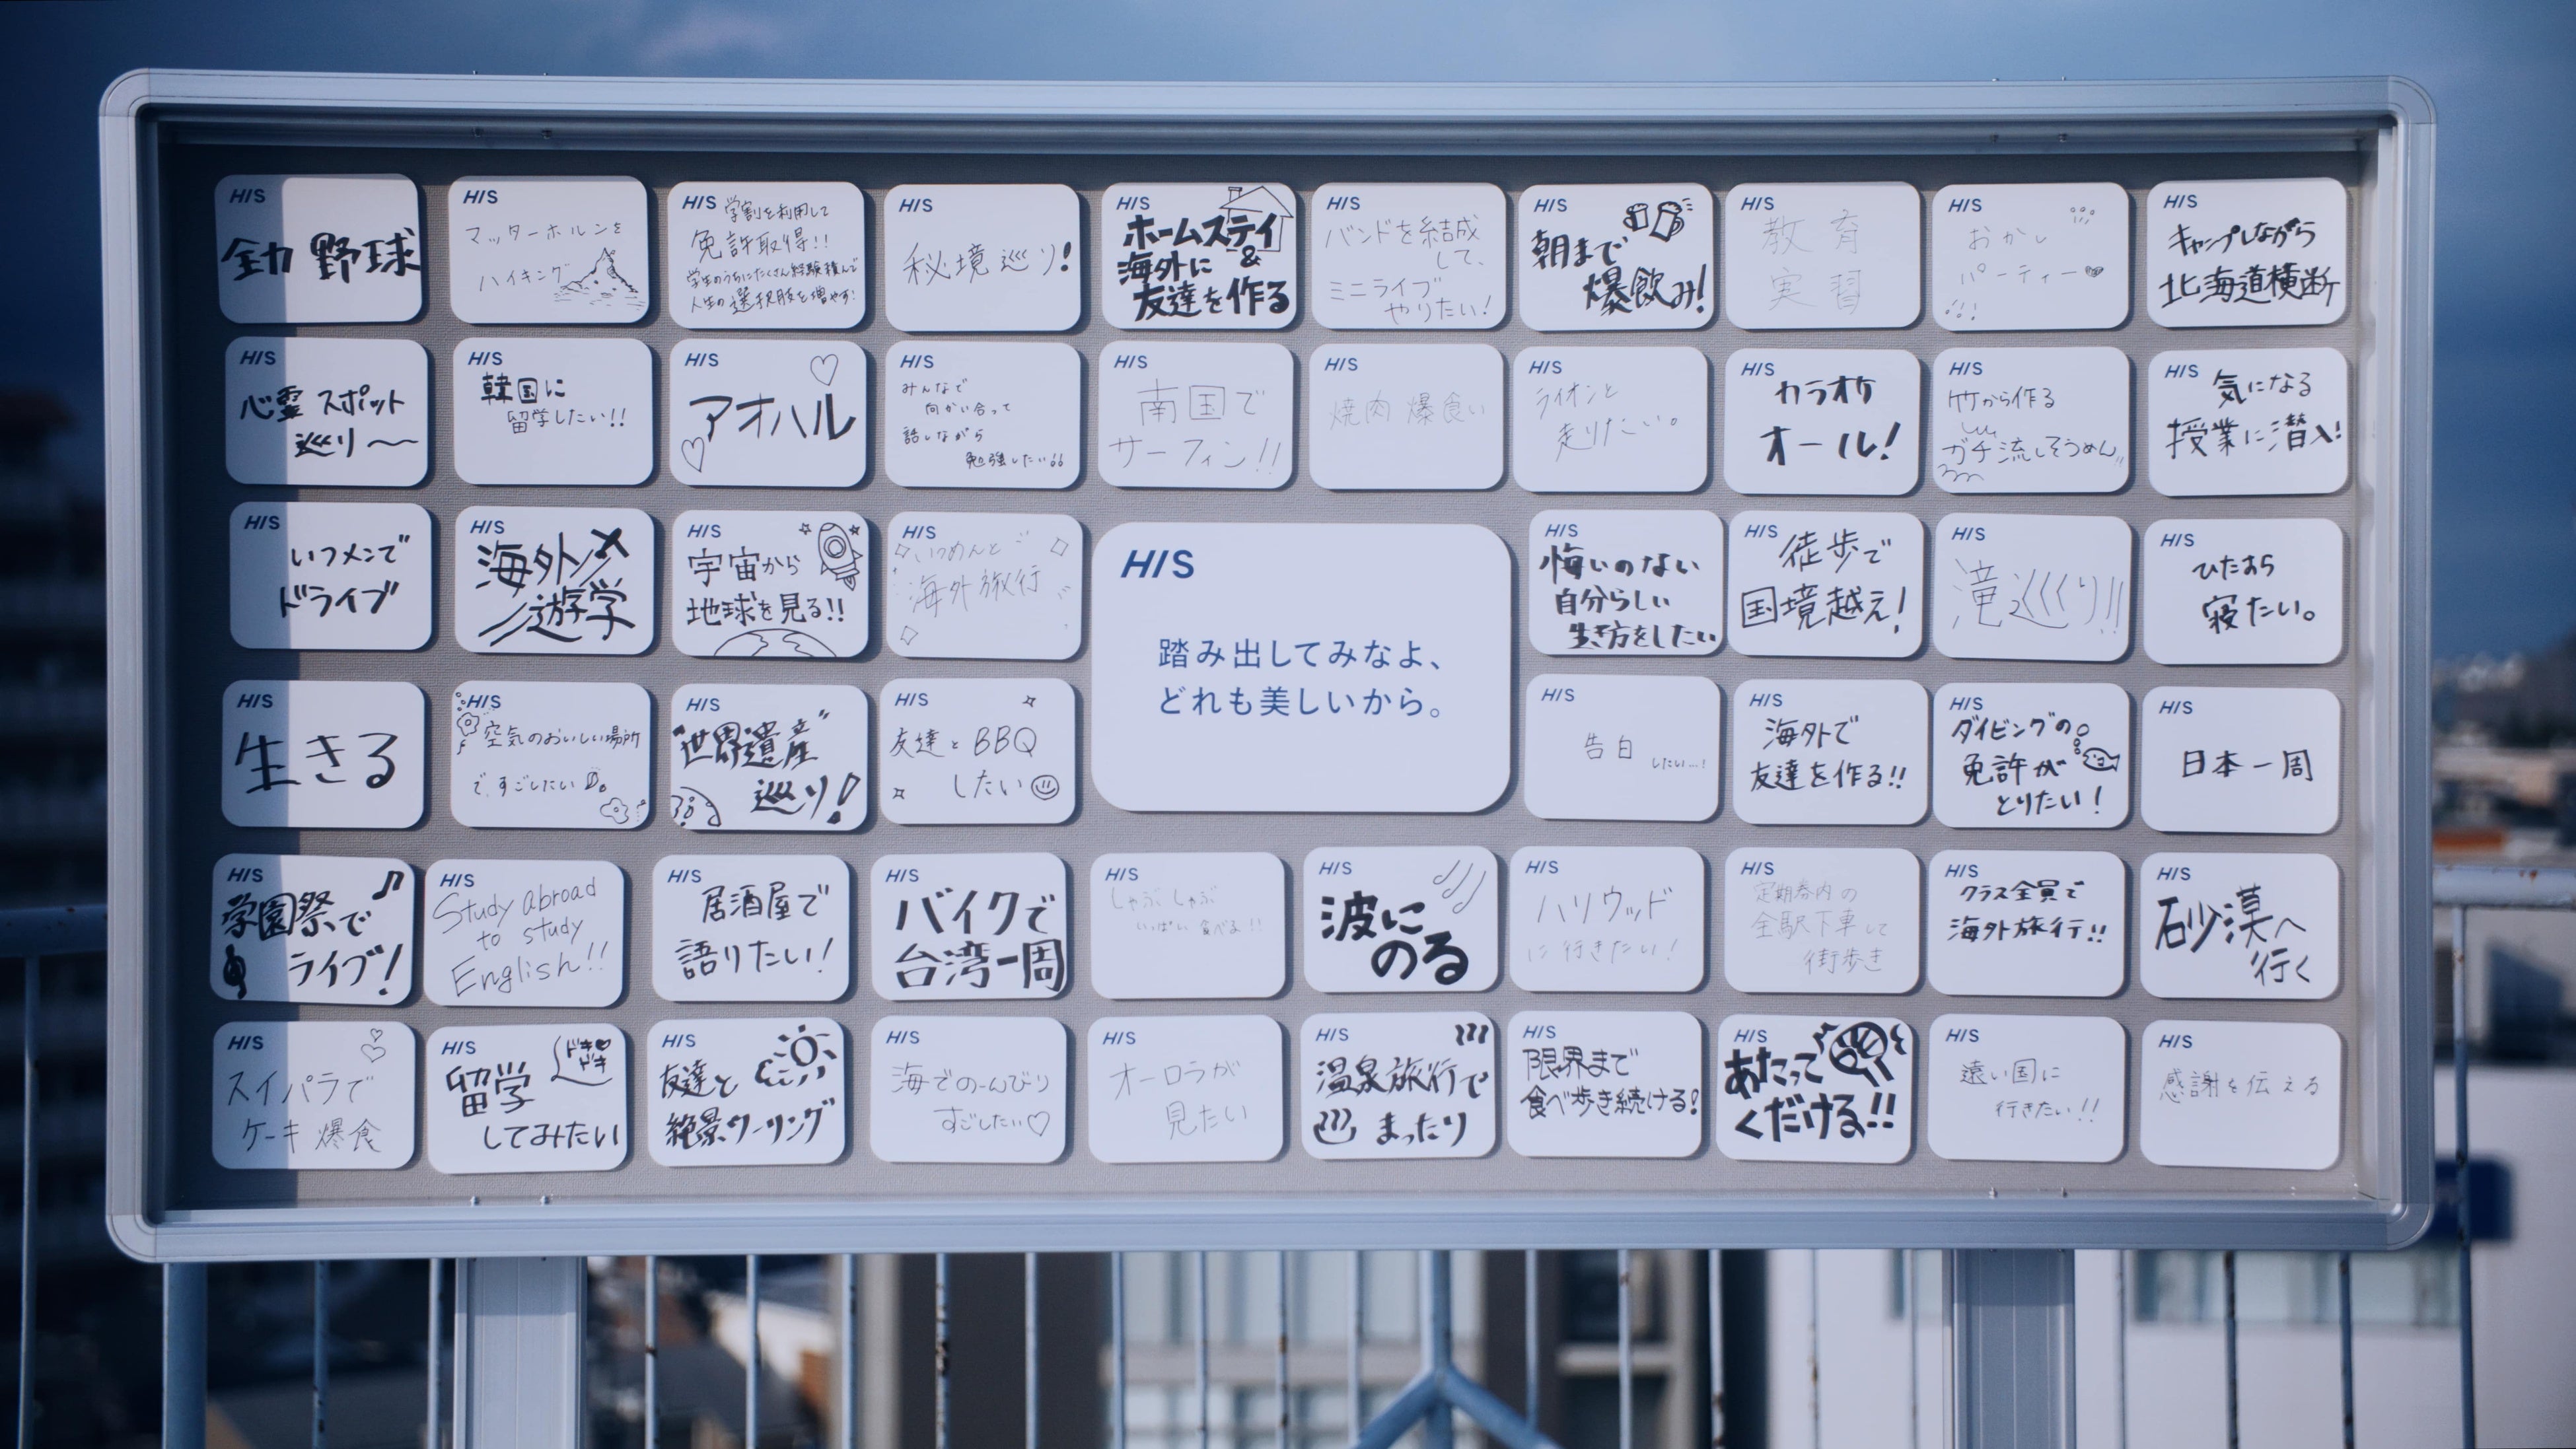 HIS
全力 野球
HIS
マッターホルンを
ハイキング
HIS 学割を利用して
免許取得!!
学生のうちにたくさん経験積んで
人生の選択肢を増やす!
HIS
秘境巡り!
HIS
ホームステイ
&
海外に
友達を作る
HIS
バンドを結成
して、
ミニライブ
やりたい!
HIS
朝まで
爆飲み!
HIS
教育
実習
HIS
おかし
パーティー
HIS
キャンプしながら
北海道横断
HIS
心霊スポット
巡り〜
HIS
韓国に
留学したい!!
HIS
アオハル
HIS
みんなで
向かい合って
話しながら
勉強したい!!
HIS
南国で
サーフィン!!
HIS
焼肉 爆食い
HIS
ライオンと
走りたい。
HIS
カラオケ
オール!
HIS
竹から作る
ガチ流しそうめん
HIS
気になる
授業に潜入!
HIS
いつメンで
ドライブ
HIS
海外
遊学
HIS
宇宙から
地球を見る!!
HIS
いつめんと
海外旅行
HIS
踏み出してみなよ、
どれも美しいから。
HIS
悔いのない
自分らしい
生き方をしたい
HIS
徒歩で
国境越え!
HIS
滝巡り!!
HIS
ひたすら
寝たい。
HIS
生きる
HIS
空気のおいしい場所
で、すごしたい
HIS
"世界遺産"
巡り!
HIS
友達とBBQ
したい
HIS
告白 したい…!
HIS
海外で
友達を作る!!
HIS
ダイビングの
免許が
とりたい!
HIS
日本一周
HIS
学園祭で
ライブ!
HIS
Study abroad
to study
English!!
HIS
居酒屋で
語りたい!
HIS
バイクで
台湾一周
HIS
しゃぶしゃぶ
いっぱい食べる!!
HIS
波に
のる
HIS
ハリウッド
に行きたい!
HIS
定期券内の
全駅下車して
街歩き
HIS
クラス全員で
海外旅行!!
HIS
砂漠へ
行く
HIS
スイパラで
ケーキ爆食
HIS
ドキ
ドキ
留学
してみたい
HIS
友達と
絶景ツーリング
HIS
海でのーんびり
すごしたい♡
HIS
オーロラが
見たい
HIS
温泉旅行で
まったり
HIS
限界まで
食べ歩き続ける!
HIS
あたって
くだける!!
HIS
遠い国に
行きたい!!
HIS
感謝を伝える